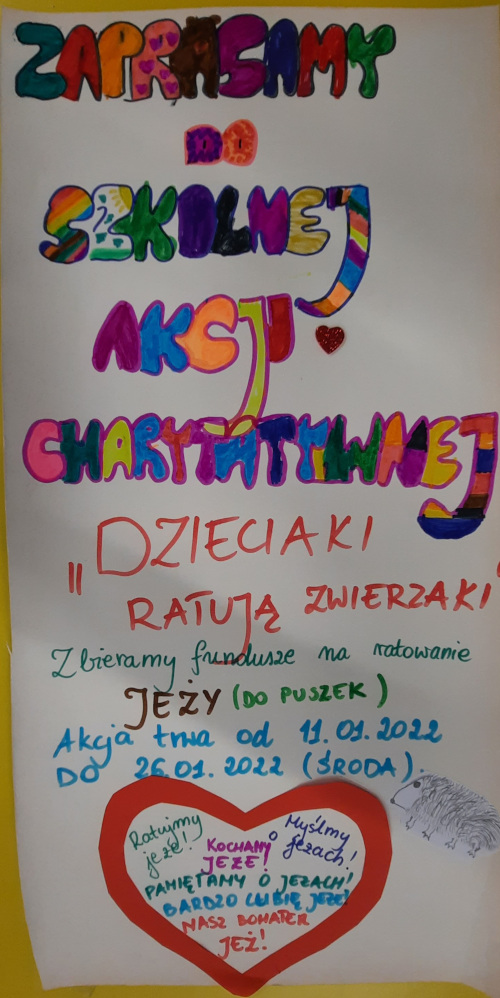 ZAPRASZAMY
DO
SZKOLNEJ
AKCJI
CHARYTATYWNEJ
„DZIECIAKI
RATUJĄ ZWIERZAKI"
Zbieramy fundusze na ratowanie
JEŻY (DO PUSZEK)
Akcja trwa od 11.01.2022
DO 26.01.2022 (ŚRODA).
Ratujmy jeże!
Myślmy o jeżach!
KOCHAMY JEŻE!
PAMIĘTAMY O JEŻACH!
BARDZO LUBIĘ JEŻE!
NASZ BOHATER
JEŻ!